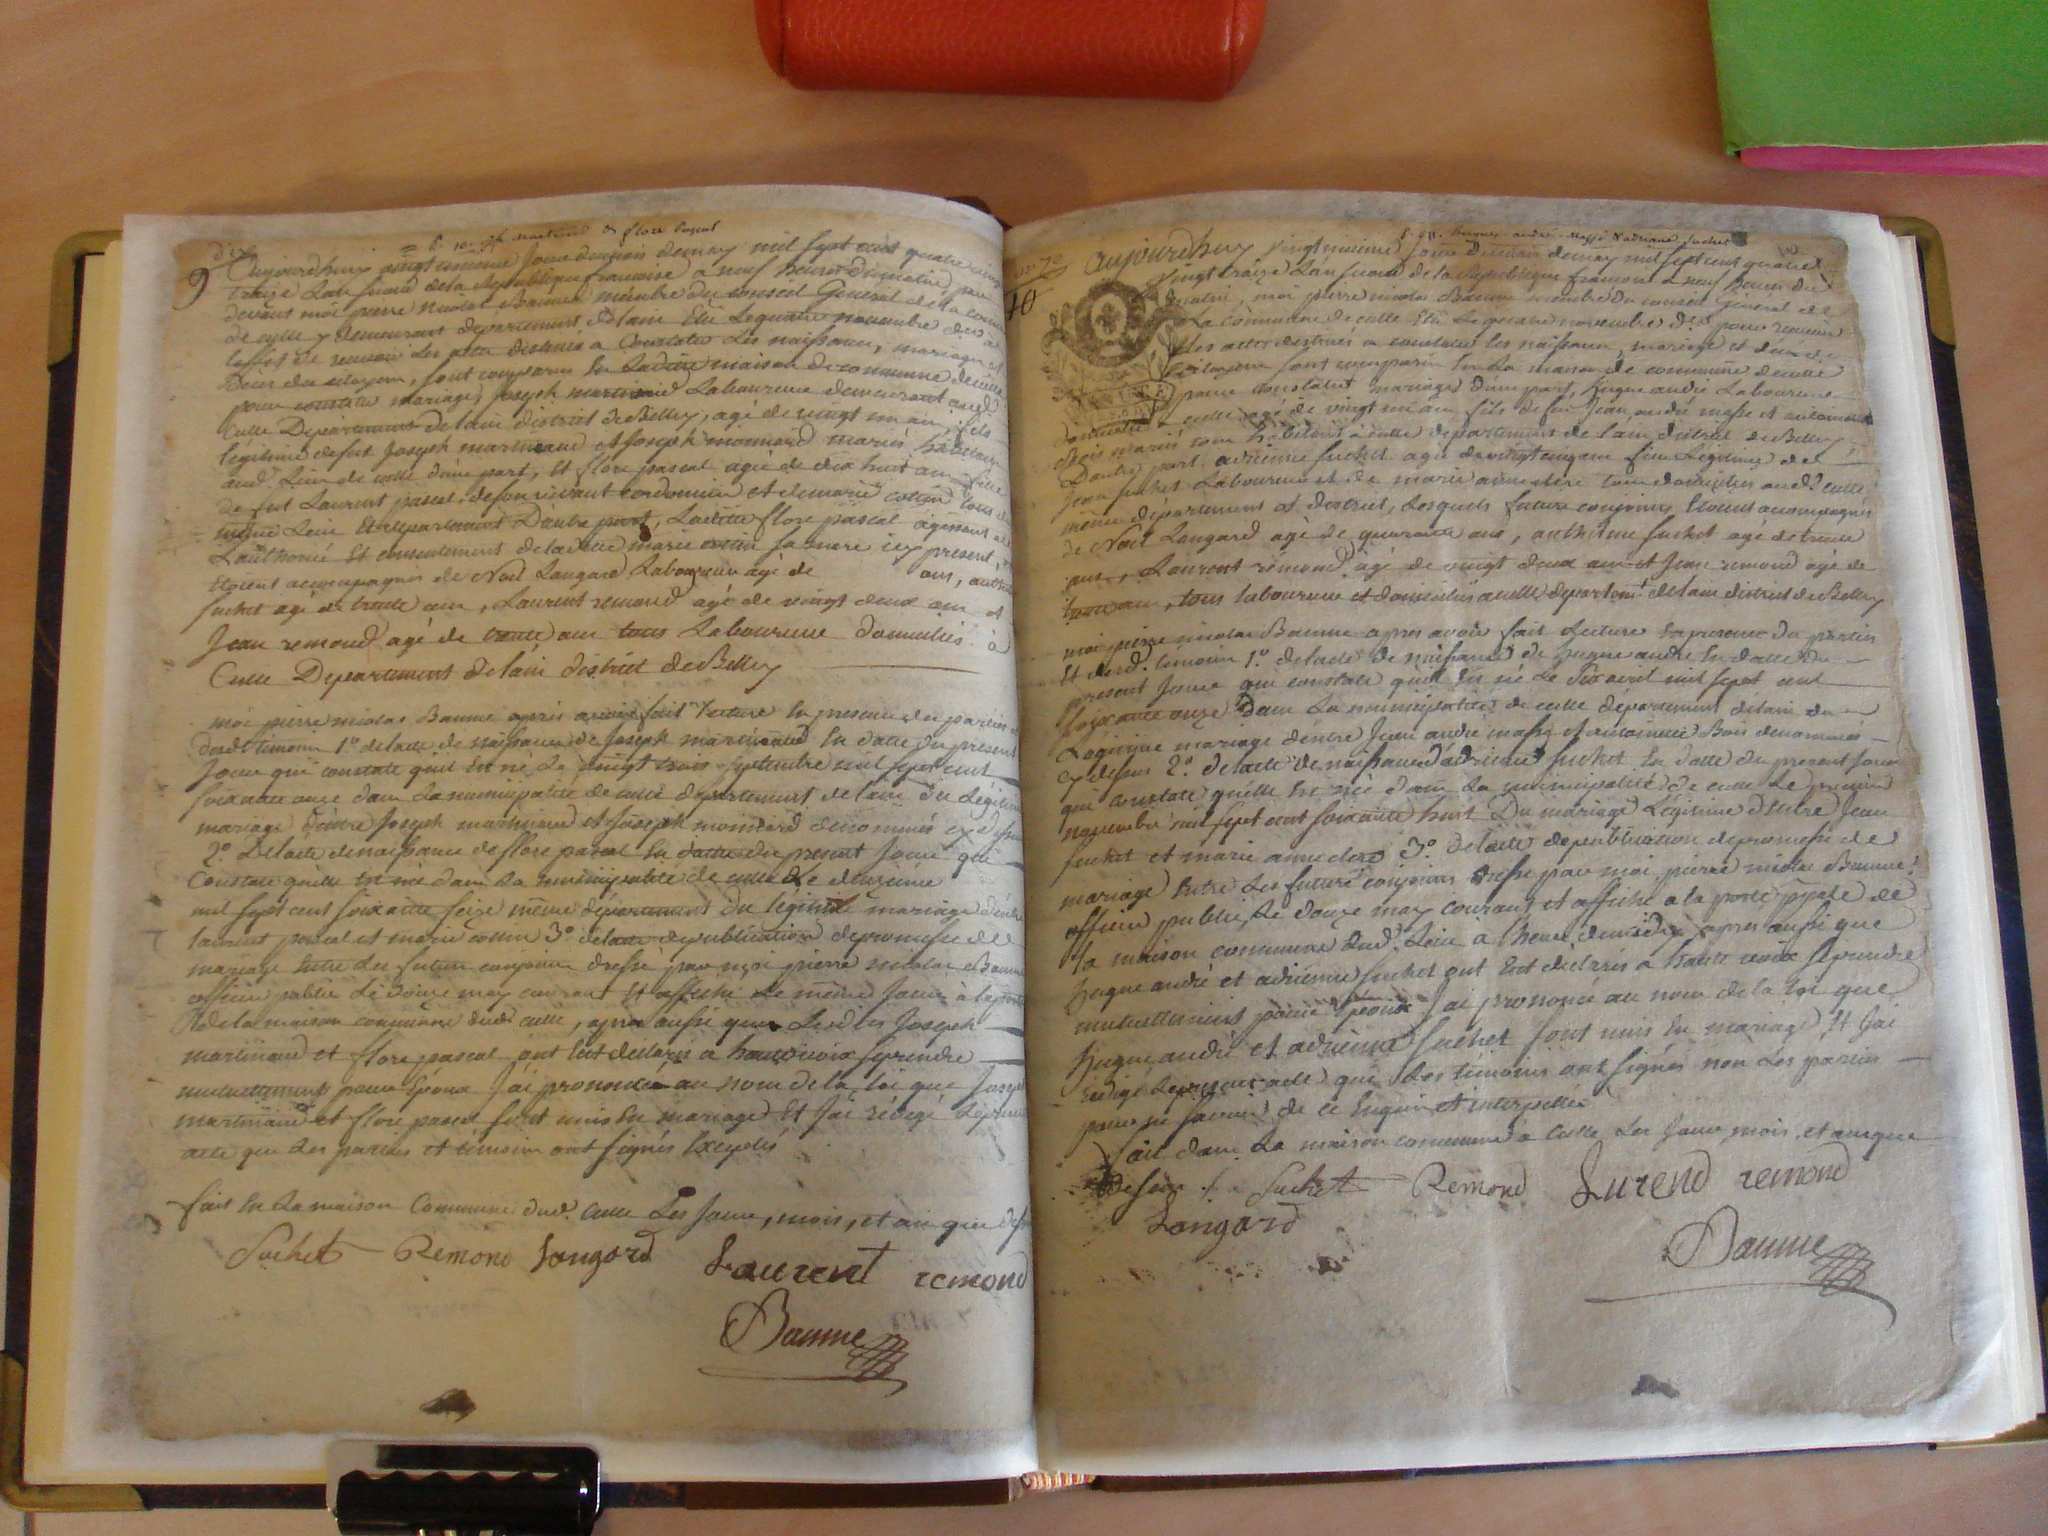 dix
9
Aujourdhuy vingt unieme Jour du mois de may mil sept cent quatre vingt
treize L'an second de la Republique francoise a neuf heures du matin, par
devant moi pierre nicolas Baume membre du conseil General de la commune
de culle y demeurant departement de lain Elu Le quatre novembre dernier a
leffet de recevoir Les actes destinés a Constater Les naissances, mariages et
Deces des citoyens, sont comparus En La ditte maison de commune de culle
pour constater mariage, Joseph martinand Laboureur demeurant aud.
Culle Departement de lain district de Belley, agé de vingt un an, fils
legitime de feu Joseph martinand et Joseph monnard mariés habitant
aud. Lieu de culle d'une part, Et flore pascal agée de dix huit ans fille
de feu Laurent pascal de son vivant cordonnier et de marie cottin tous du
même Lieu Et departement D'autre part, Laditte flore pascal agissant de
L'authorité Et consentement de laditte marie cottin sa mere icy present,
Etoient accompagnés de Noel Langard Laboureur agé de ans,
suchet agé de trente ans, Laurent remond agé de vingt deux ans et
Jean remond agé de trente ans tous Laboureurs domiciliés à
Culle Departement de lain district de Belley
moi pierre nicolas Baume apres avoir fait Lecture En presence des parties et
desdts temoins 1º. de lacte de naissance de Joseph martinand En datte du present
Jour qui constate quil Est né Le vingt trois septembre mil sept cent
soixante onze dans La municipalité de culle departement de lain du Légitime
mariage dentre Joseph martinand et Joseph monnard denommés cy dessus
2º. De lacte de naissance de flore pascal En datte du present Jour qui
Constate quelle Est née dans La municipalité de culle Le
mil sept cent soixante seize même département du légitime mariage dentre
laurent pascal et marie cottin 3º. de lacte de publication de promesse de
mariage Entre Les futurs conjoints dressé par moi pierre nicolas Baume
officier public Le douze may courant Et affiché Le même Jour à la porte
de la maison commune dud. culle, apres aussi que Lesdits Joseph
martinand et flore pascal ont Eut declaré a haute voix se prendre
mutuellement pour Epoux J'ai prononcé au nom de la loi que Joseph
martinand et flore pascal sont unis En mariage Et J'ai rédigé Le present
acte que Les parties et temoins ont signés
fait En La maison Commune dud. Culle Les Jour, mois, et an que dessus
Suchet Remond Langard Laurent remond
Baume
40
aujourdhuy vingt unieme Jour du mois de may mil sept cent quatre
vingt treize L'an second de la Republique francoise a neuf heures du
matin, moi pierre nicolas Baume membre du conseil Général de
La commune de culle Elu Le quatre novembre d. pour recevoir
Les actes destinés a constater les naissances, mariage et décès de
citoyens sont comparus En La maison de commune de culle
pour constater mariage d'une part, hugue andré Laboureur
domicilié a culle agé de vingt un ans fils de feu Jean andré masse et antoinette
Bois mariés tous habitant à culle departement de lain district de Belley
Dautre part adrienne suchet agée de vingt cinq ans fille Legitime de
Jean suchet Laboureur et de marie anne clerc tous domiciliés aud. culle
même département et district, Lesquels futurs conjoints Etoient acompagnés
de Noel Langard agé de quarante ans, anthelme suchet agé de trente
ans, Laurent rémond agé de vingt deux ans et Jean remond agé de
trente ans, tous laboureurs et domiciliés a culle departemt. de lain district de Belley
moi pierre nicolas Baume apres avoir fait Lecture En presence des parties
Et desd. témoins 1º. de lacte de naissance de hugue andré En datte du
present Jour qui constate quil Est né Le Six avril mil sept cent
soixante onze dans La municipalité de culle département de lain du
Legitime mariage dentre Jean andré masse et antoinette Bois denommés
cy dessus 2º. de lacte de naissance d'adrienne suchet En datte du present Jour
qui constate quelle Est née dans La municipalité de culle Le premier
novembre mil sept cent soixante huit Du mariage Légitime d'Entre Jean
suchet et marie anne clerc 3º. de lacte de publication de promesse de
mariage Entre Les futurs conjoints dressé par moi pierre nicolas Baume
officier public, Le douze may courant et affiché a la porte pple de
la maison commune dud. Lieu a heure de midi, apres aussi que
hugue andré et adrienne suchet ont Eut declaré a haute voix se prendre
mutuellement pour Epoux J'ai prononcé au nom de la loi que
hugue andré et adrienne suchet sont unis En mariage Et J'ai
rédigé Le present acte que Les témoins ont signés non Les parties
pour ne savoir de ce Enquis et interpellés
fait dans La maison commune a Culle Les Jour mois et an que
dessus Suchet Remond Lurend remond
Langard
Baume